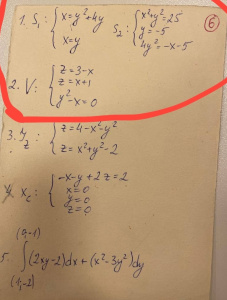 1. S₁: { x=y²+4y
x=y
S₂: { x²+y²=25
y=-5
4y²=-x-5
б
2. V: { z=3-x
z=x+1
y²-x=0
3. z=4-x²-y²
z=x²+y²-2
4. { -x-y+2z=2
x=0
y=0
z=0
5. (0,-1)
∫(2xy-2)dx+(x²-3y²)dy
(1,-2)